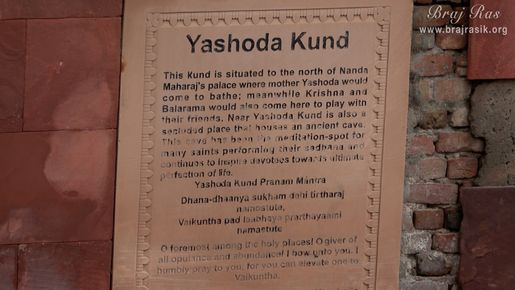 Braj Ras
www.brajrasik.org
Yashoda Kund
This Kund is situated to the north of Nanda
Maharaj's palace where mother Yashoda would
come to bathe; meanwhile Krishna and
Balarama would also come here to play with
their friends. Near Yashoda Kund is also a
secluded place that houses an ancient cave.
This cave has been the meditation-spot for
many saints performing their sadhana and
continues to inspire devotees towards ultimate
perfection of life.
Yashoda Kund Pranam Mantra
Dhana-dhaanya sukham dehi tirtharaj
namostute,
Vaikuntha pad laabhaya prarthayaami
namastute
O foremost among the holy places! O giver of
all opulance and abundance! I bow unto you. I
humbly pray to you, for you can elevate one to
Vaikuntha.